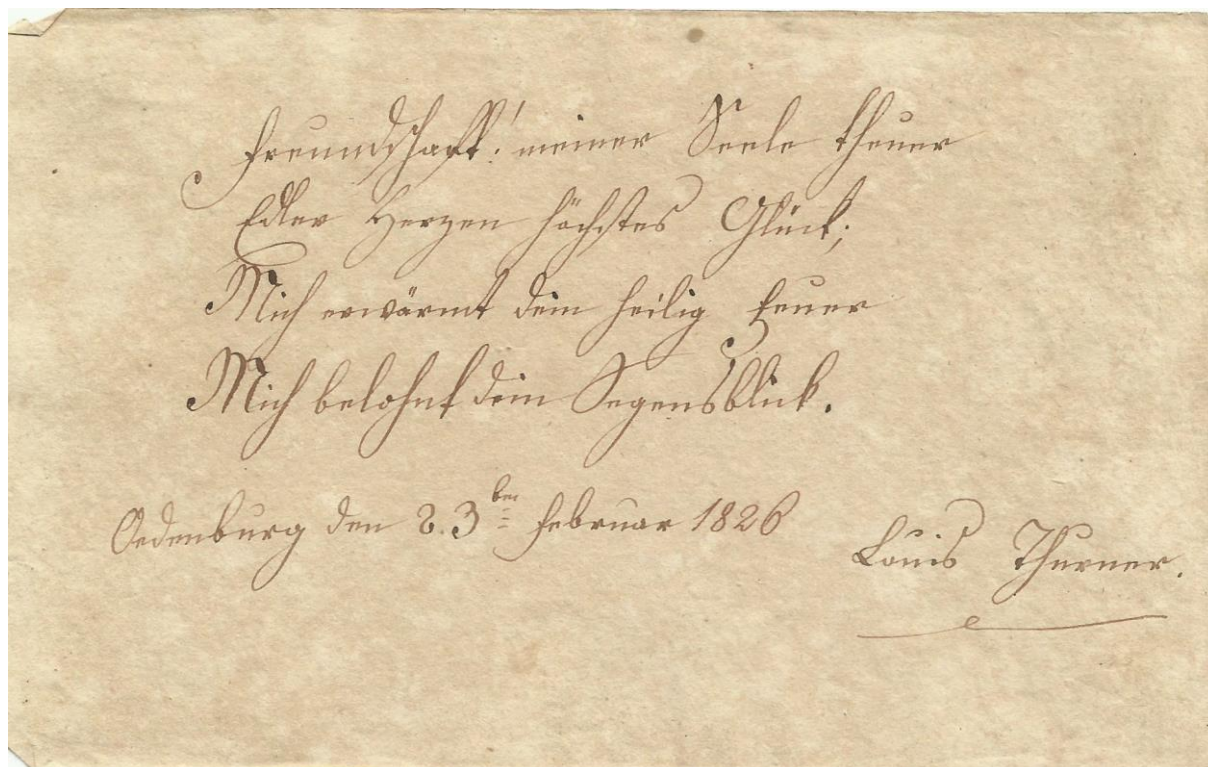 Freundschaft! meiner Seele theuer
Edler Herzen höchstes Glück;
Mich erwärmt dein heilig Feuer
Mich belohnt dein Segensblick.
Oedenburg den 2.3ten Februar 1826
Louis Thurner.